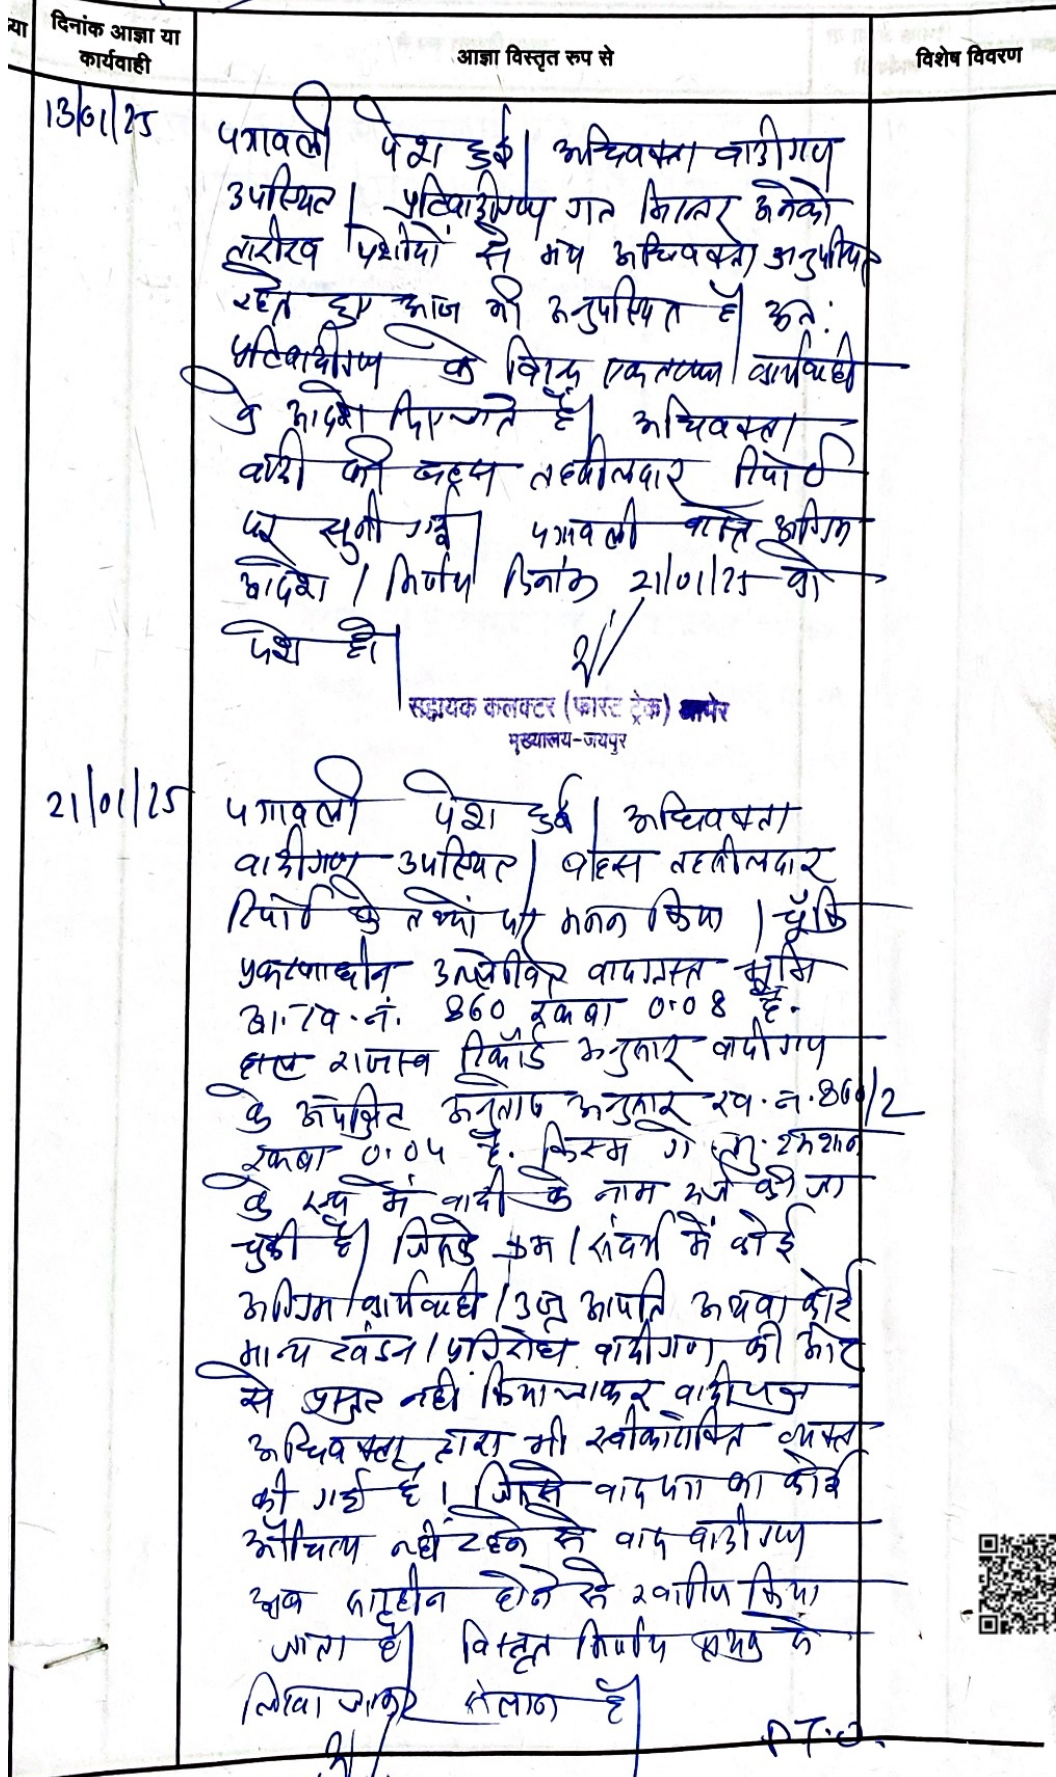 दिनांक आज्ञा या
कार्यवाही
आज्ञा विस्तृत रुप से
विशेष विवरण
13/01/25
पत्रावली पेश हुई। अधिवक्ता वादीगण
उपस्थित। प्रतिवादीगण गत निरन्तर अनेको
तारीख पेशीयों से मय अधिवक्ता अनुपस्थित
रहते हुए आज भी अनुपस्थित है। अतः
प्रतिवादीगण के विरुद्ध एकतरफा कार्यवाही
के आदेश दिए जाते हैं। अधिवक्ता
वादी की बहस तहसीलदार रिपोर्ट
पर सुनी गई। पत्रावली वास्ते अग्रिम
आदेश / निर्णय दिनांक 21/01/25 को
पेश हो।
सहायक कलक्टर (फास्ट ट्रेक) आमेर
मुख्यालय-जयपुर
21/01/25
पत्रावली पेश हुई। अधिवक्ता
वादीगण उपस्थित। बहस तहसीलदार
रिपोर्ट के तथ्यों पर मनन किया। चूँकि
प्रकरणाधीन उल्लेखित वादग्रस्त भूमि
ख. नं. 860 रकबा 0.08 है.
राजस्व रिकॉर्ड अनुसार वादीगण
के अपेक्षित अनुतोष अनुसार ख. नं. 860/2
रकबा 0.04 है. किस्म गै. मु. श्मशान
के रूप में वादी के नाम दर्ज की जा
चुकी है। जिसके क्रम / संदर्भ में कोई
अग्रिम कार्यवाही / उज्र आपत्ति अथवा कोई
मान्य खंडन / प्रतिरोध वादीगण की ओर
से प्रस्तुत नहीं किया जाकर वादीपक्ष
अधिवक्ता द्वारा भी स्वीकारोक्ति व्यक्त
की गई है। जिससे वाद का कोई
औचित्य नहीं रहने से वाद वादीगण
अब सारहीन होने से खारिज किया
जाता है। विस्तृत निर्णय पृथक से
लिखा जाकर संलग्न है।
P.T.O.